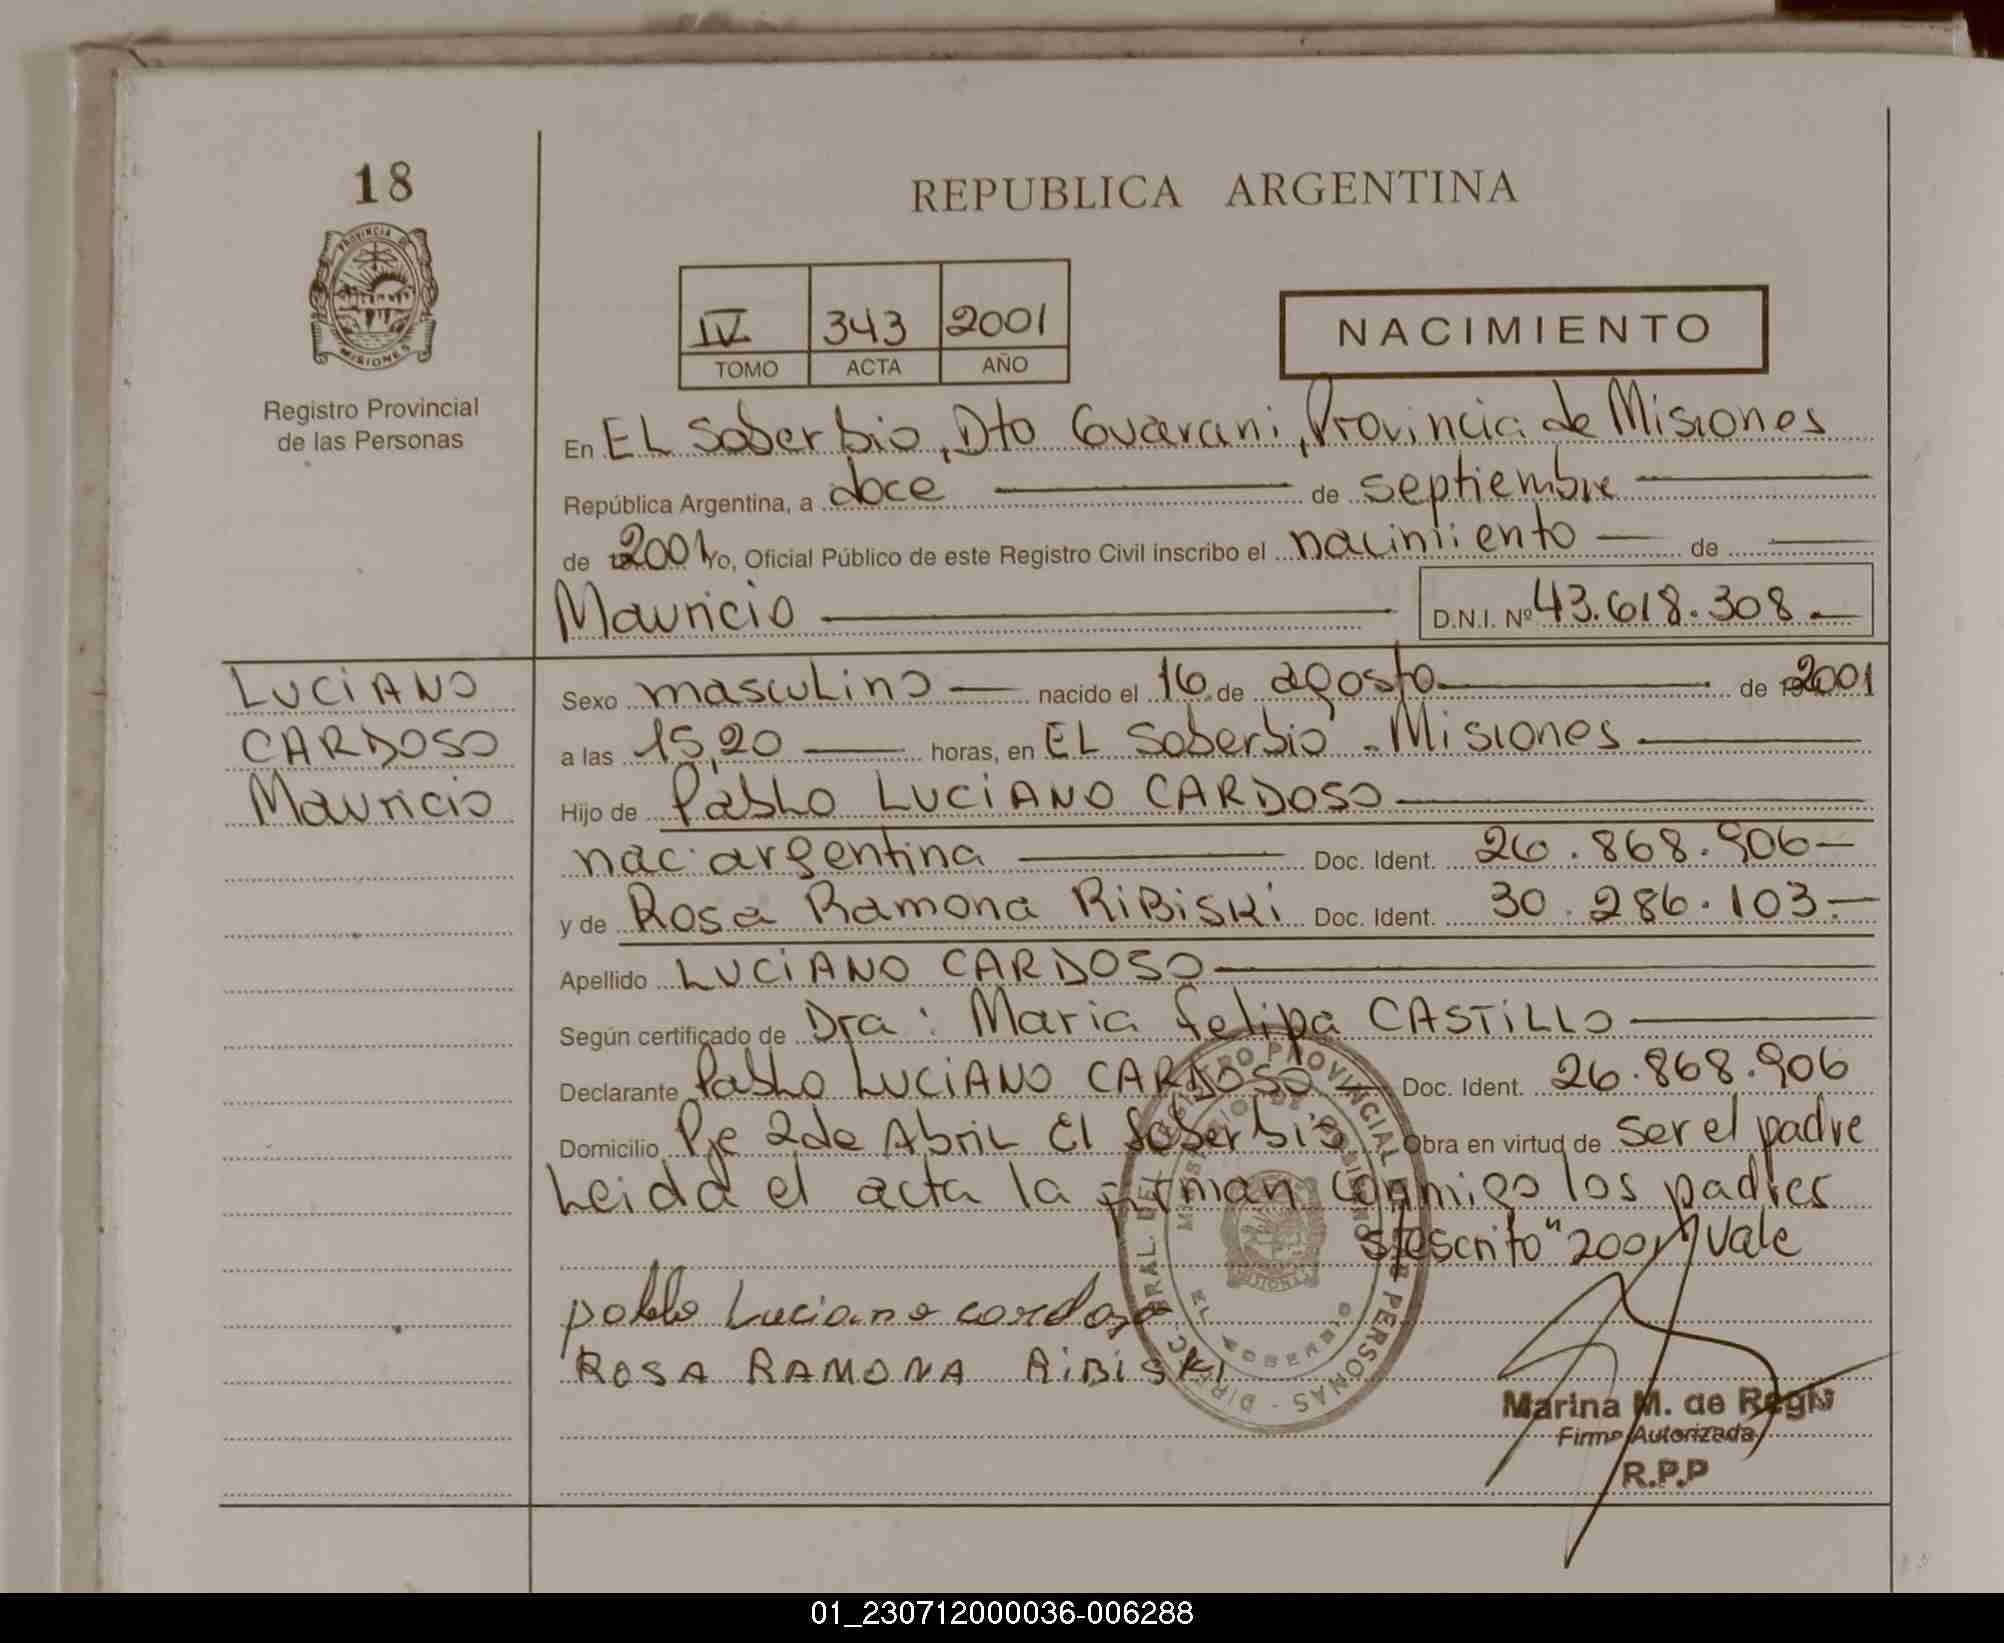 18
PROVINCIA DE
MISIONES
Registro Provincial
de las Personas
REPUBLICA ARGENTINA
IV 343 2001
TOMO ACTA AÑO
NACIMIENTO
En EL Soberbio, Dto Guarani, Provincia de Misiones
República Argentina, a doce de septiembre
de 2001 Yo, Oficial Público de este Registro Civil inscribo el nacimiento de
Mauricio D.N.I. Nº 43.618.308.
LUCIANO
CARDOSO
Mauricio
Sexo masculino nacido el 16 de agosto de 2001
a las 15,20 horas, en EL Soberbio - Misiones
Hijo de Pablo LUCIANO CARDOSO
nac. argentina Doc. Ident. 26.868.906
y de Rosa Ramona RIBISKI Doc. Ident. 30.286.103.
Apellido LUCIANO CARDOSO
Según certificado de Dra: Maria felipa CASTILLO
Declarante Pablo LUCIANO CARDOSO Doc. Ident. 26.868.906
Domicilio Pje 2 de Abril El Soberbio Obra en virtud de ser el padre
Leida el acta la firman conmigo los padres
s/escrito "2001" Vale
pablo Luciano cardoso
ROSA RAMONA RIBISKI
DIREC. GRAL. DEL REGISTRO PROVINCIAL DE PERSONAS
EL SOBERBIO
MISIONES
Marina M. de
Firma Autorizada
R.P.P
01_230712000036-006288